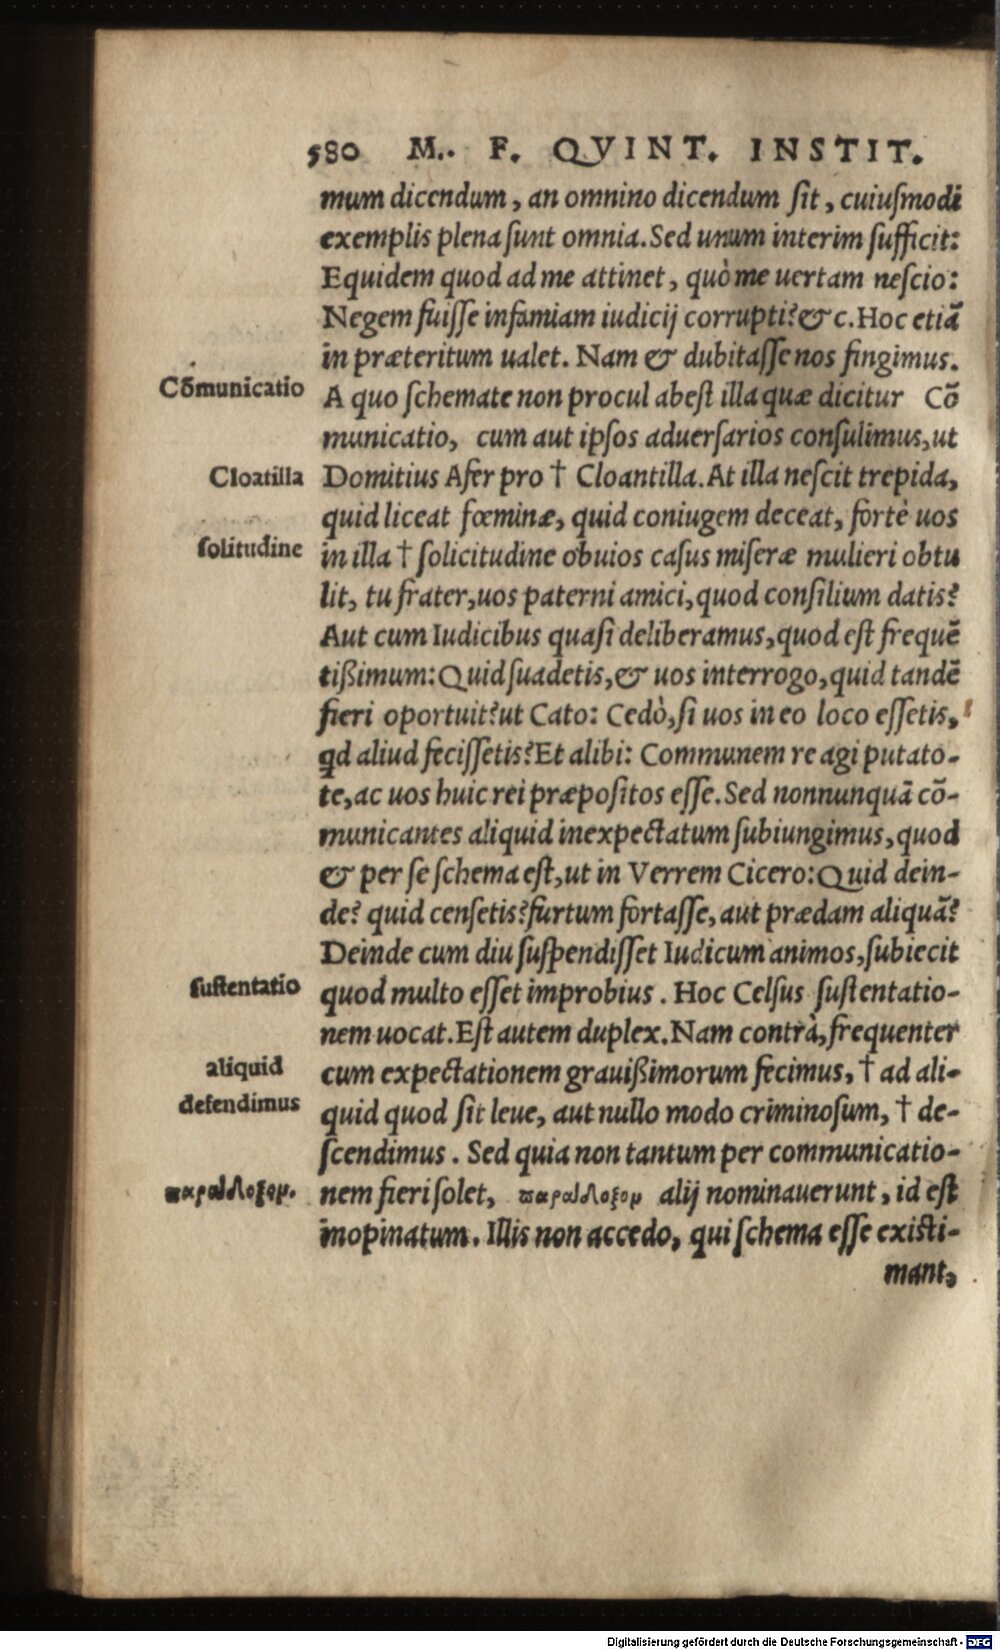 580 M.. F. QVINT. INSTIT.
mum dicendum, an omnino dicendum ſit, cuiuſmodi
exemplis plena ſunt omnia. Sed unum interim ſufficit:
Equidem quod ad me attinet, quò me uertam neſcio:
Negem fuiſſe infamiam iudicij corrupti? & c. Hoc etiã
in præteritum ualet. Nam & dubitaſſe nos fingimus.
Cõmunicatio
A quo ſchemate non procul abeſt illa quæ dicitur Cõ
municatio, cum aut ipſos aduerſarios conſulimus, ut
Cloatilla
Domitius Afer pro † Cloantilla. At illa neſcit trepida,
quid liceat fœminæ, quid coniugem deceat, fortè uos
ſolitudine
in illa † ſolicitudine obuios caſus miſeræ mulieri obtu
lit, tu frater, uos paterni amici, quod conſilium datis?
Aut cum Iudicibus quaſi deliberamus, quod eſt frequẽ
tißimum: Quid ſuadetis, & uos interrogo, quid tandẽ
fieri oportuit? ut Cato: Cedò, ſi uos in eo loco eſſetis,
qd aliud feciſſetis? Et alibi: Communem re agi putato-
te, ac uos huic rei præpoſitos eſſe. Sed nonnunquã cõ-
municantes aliquid inexpectatum ſubiungimus, quod
& per ſe ſchema eſt, ut in Verrem Cicero: Quid dein-
de? quid cenſetis? furtum fortaſſe, aut prædam aliquã?
Deinde cum diu ſuſpendiſſet Iudicum animos, ſubiecit
ſuſtentatio
quod multo eſſet improbius. Hoc Celſus ſuſtentatio-
nem uocat. Eſt autem duplex. Nam contrà, frequenter
aliquid
cum expectationem grauißimorum fecimus, † ad ali-
defendimus
quid quod ſit leue, aut nullo modo criminoſum, † de-
ſcendimus. Sed quia non tantum per communicatio-
παράδοξομ.
nem fieri ſolet, παράδοξομ alij nominauerunt, id eſt
inopinatum. Illis non accedo, qui ſchema eſſe exiſti-
mant,
Digitalisierung gefördert durch die Deutsche Forschungsgemeinschaft - DFG